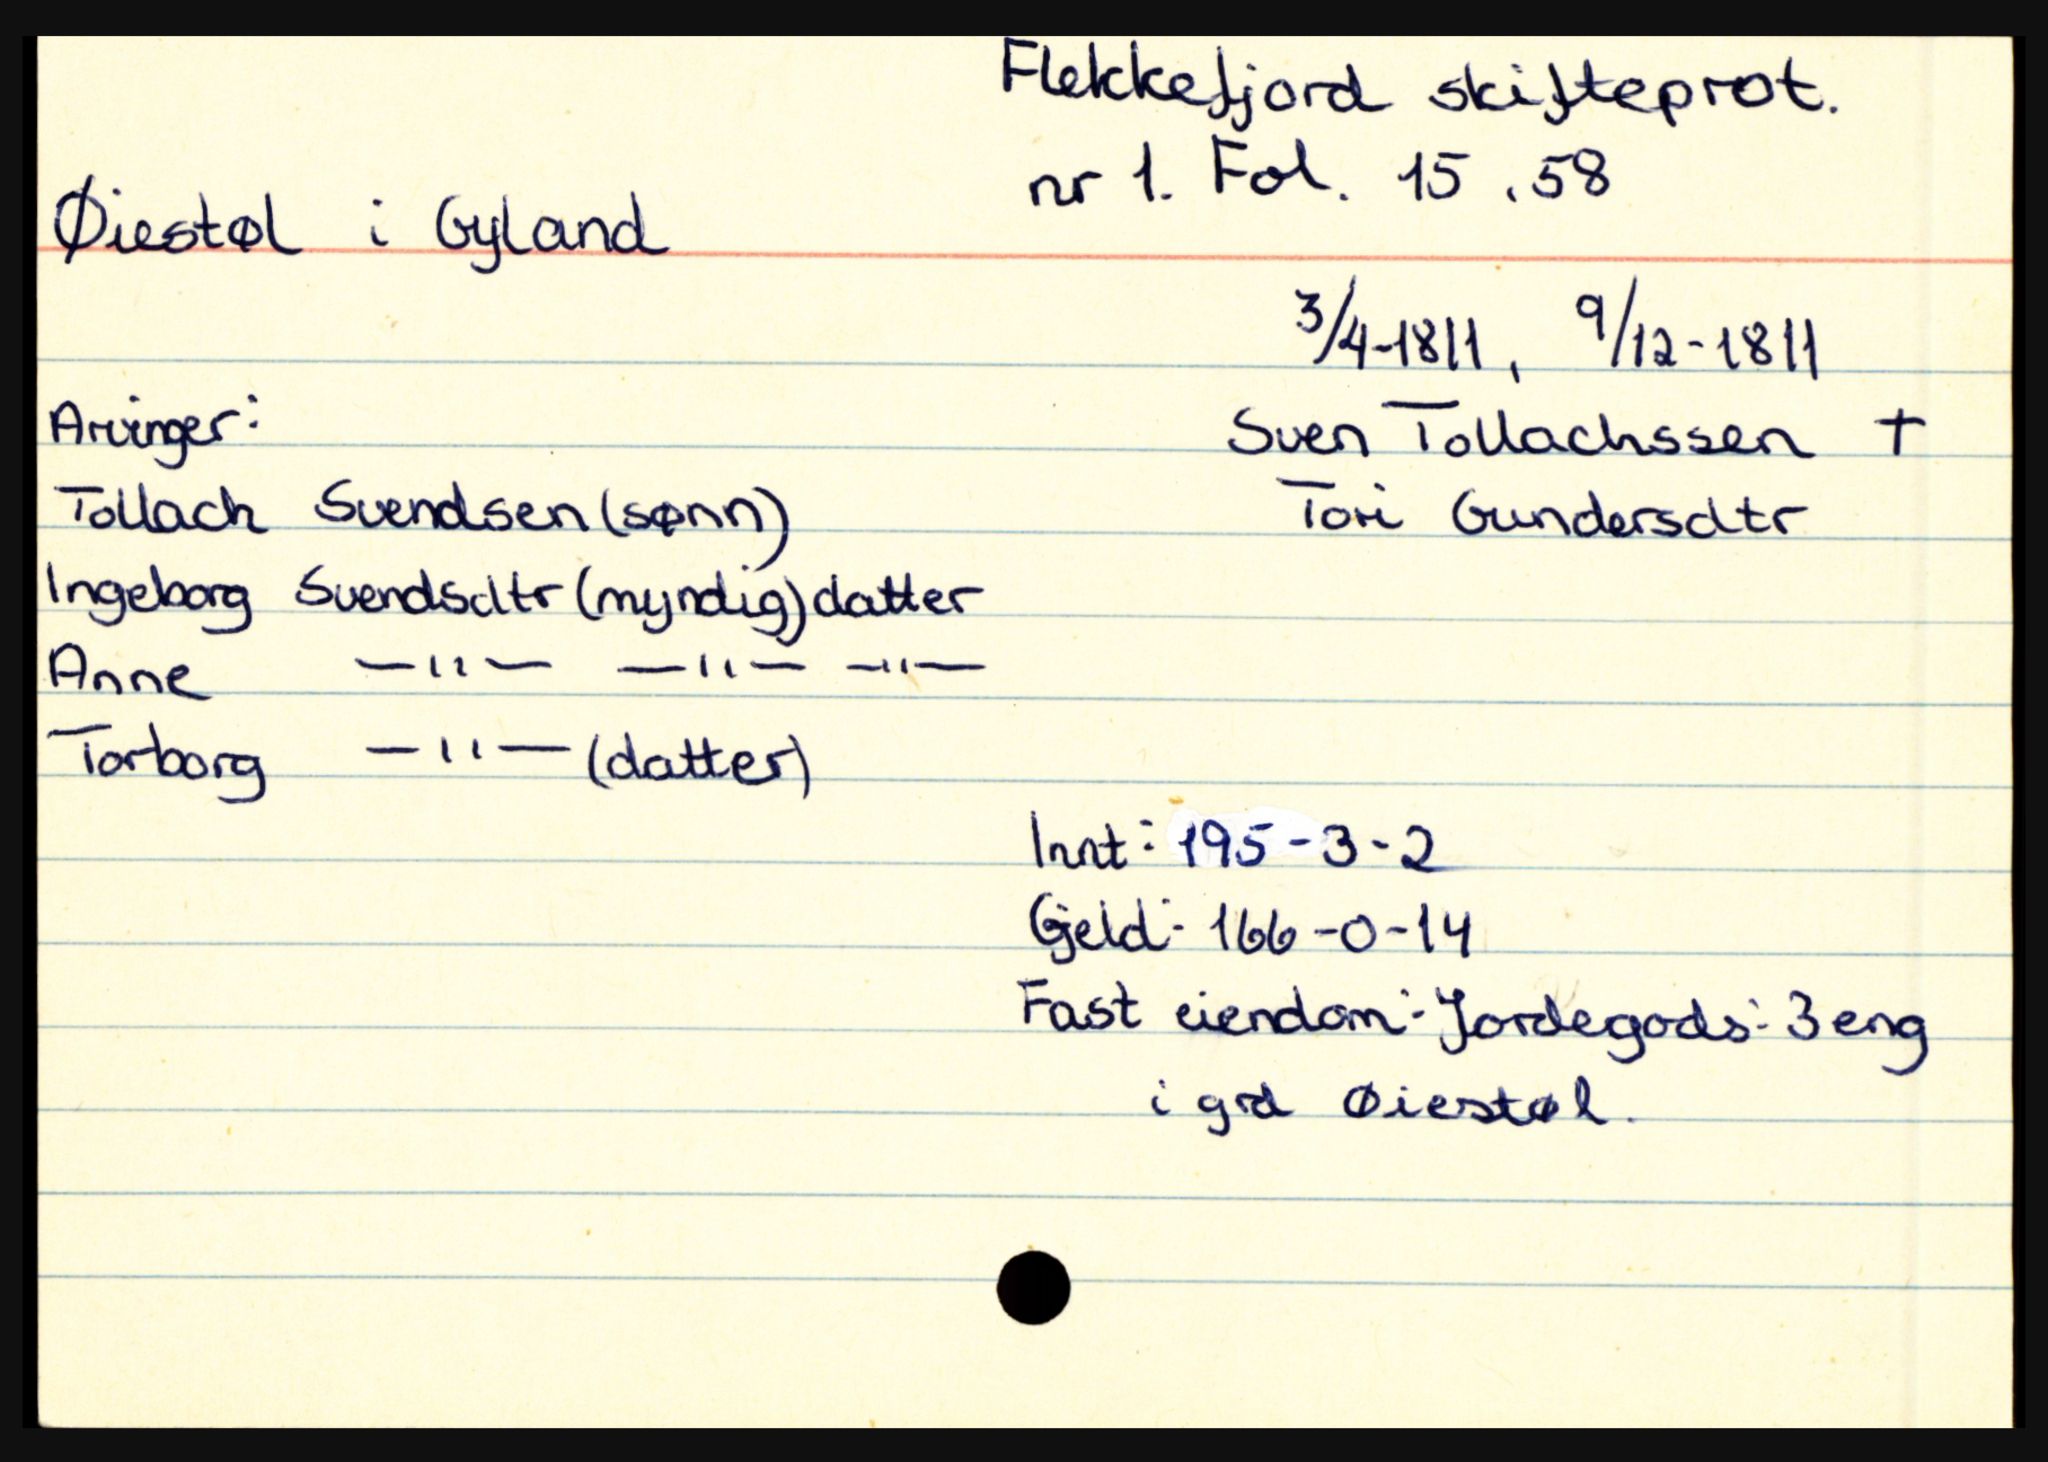 Flekkefjord skifteprot.
nr 1. Fol. 15, 58
Øiestøl i Gyland
3/4-1811, 9/12-1811
Arvinger:
Sven Tollachssen †
Tollach Svendsen (sønn)
Tori Gundersdtr
Ingeborg Svendsdtr (myndig) datter
Anne —"— —"— —"—
Torborg —"— (datter)
Innt: 195-3-2
Gjeld: 166-0-14
Fast eiendom: Jordegods: 3 eng
i grd Øiestøl.